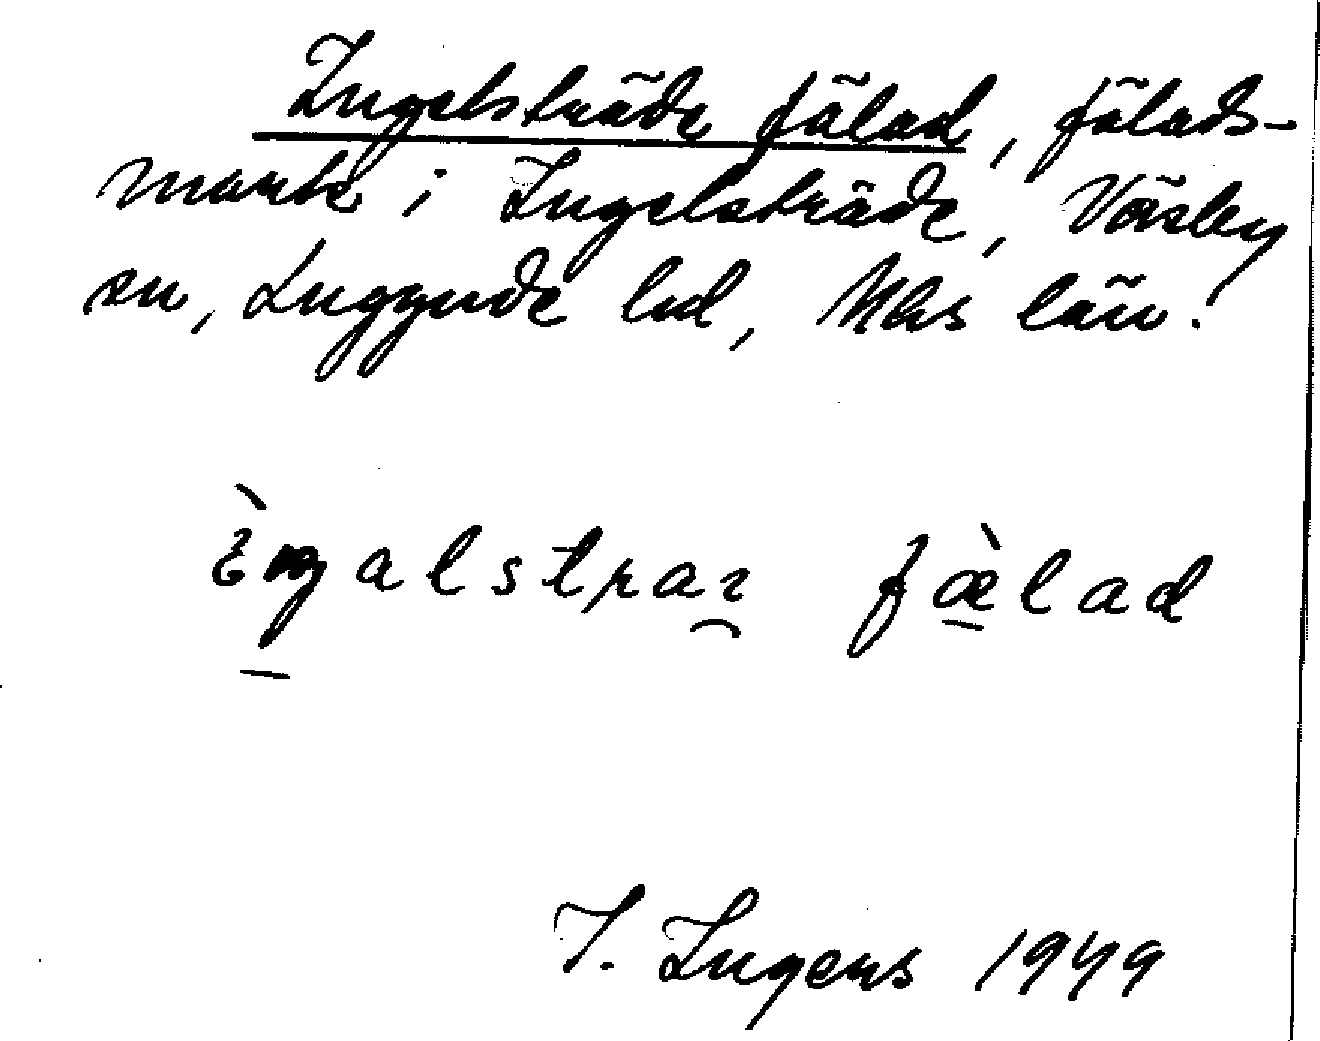 Ingelsträde fälad, fälads-
mark i Ingelsträde, Väsby
sn, Luggude hd, Mhs län.
ɛ̀ŋalstraɿ fæ̀lad
I. Ingers 1949